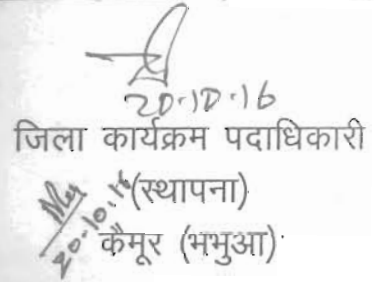 20.10.16
जिला कार्यक्रम पदाधिकारी
(स्थापना)
20.10.16
कैमूर (भभुआ)